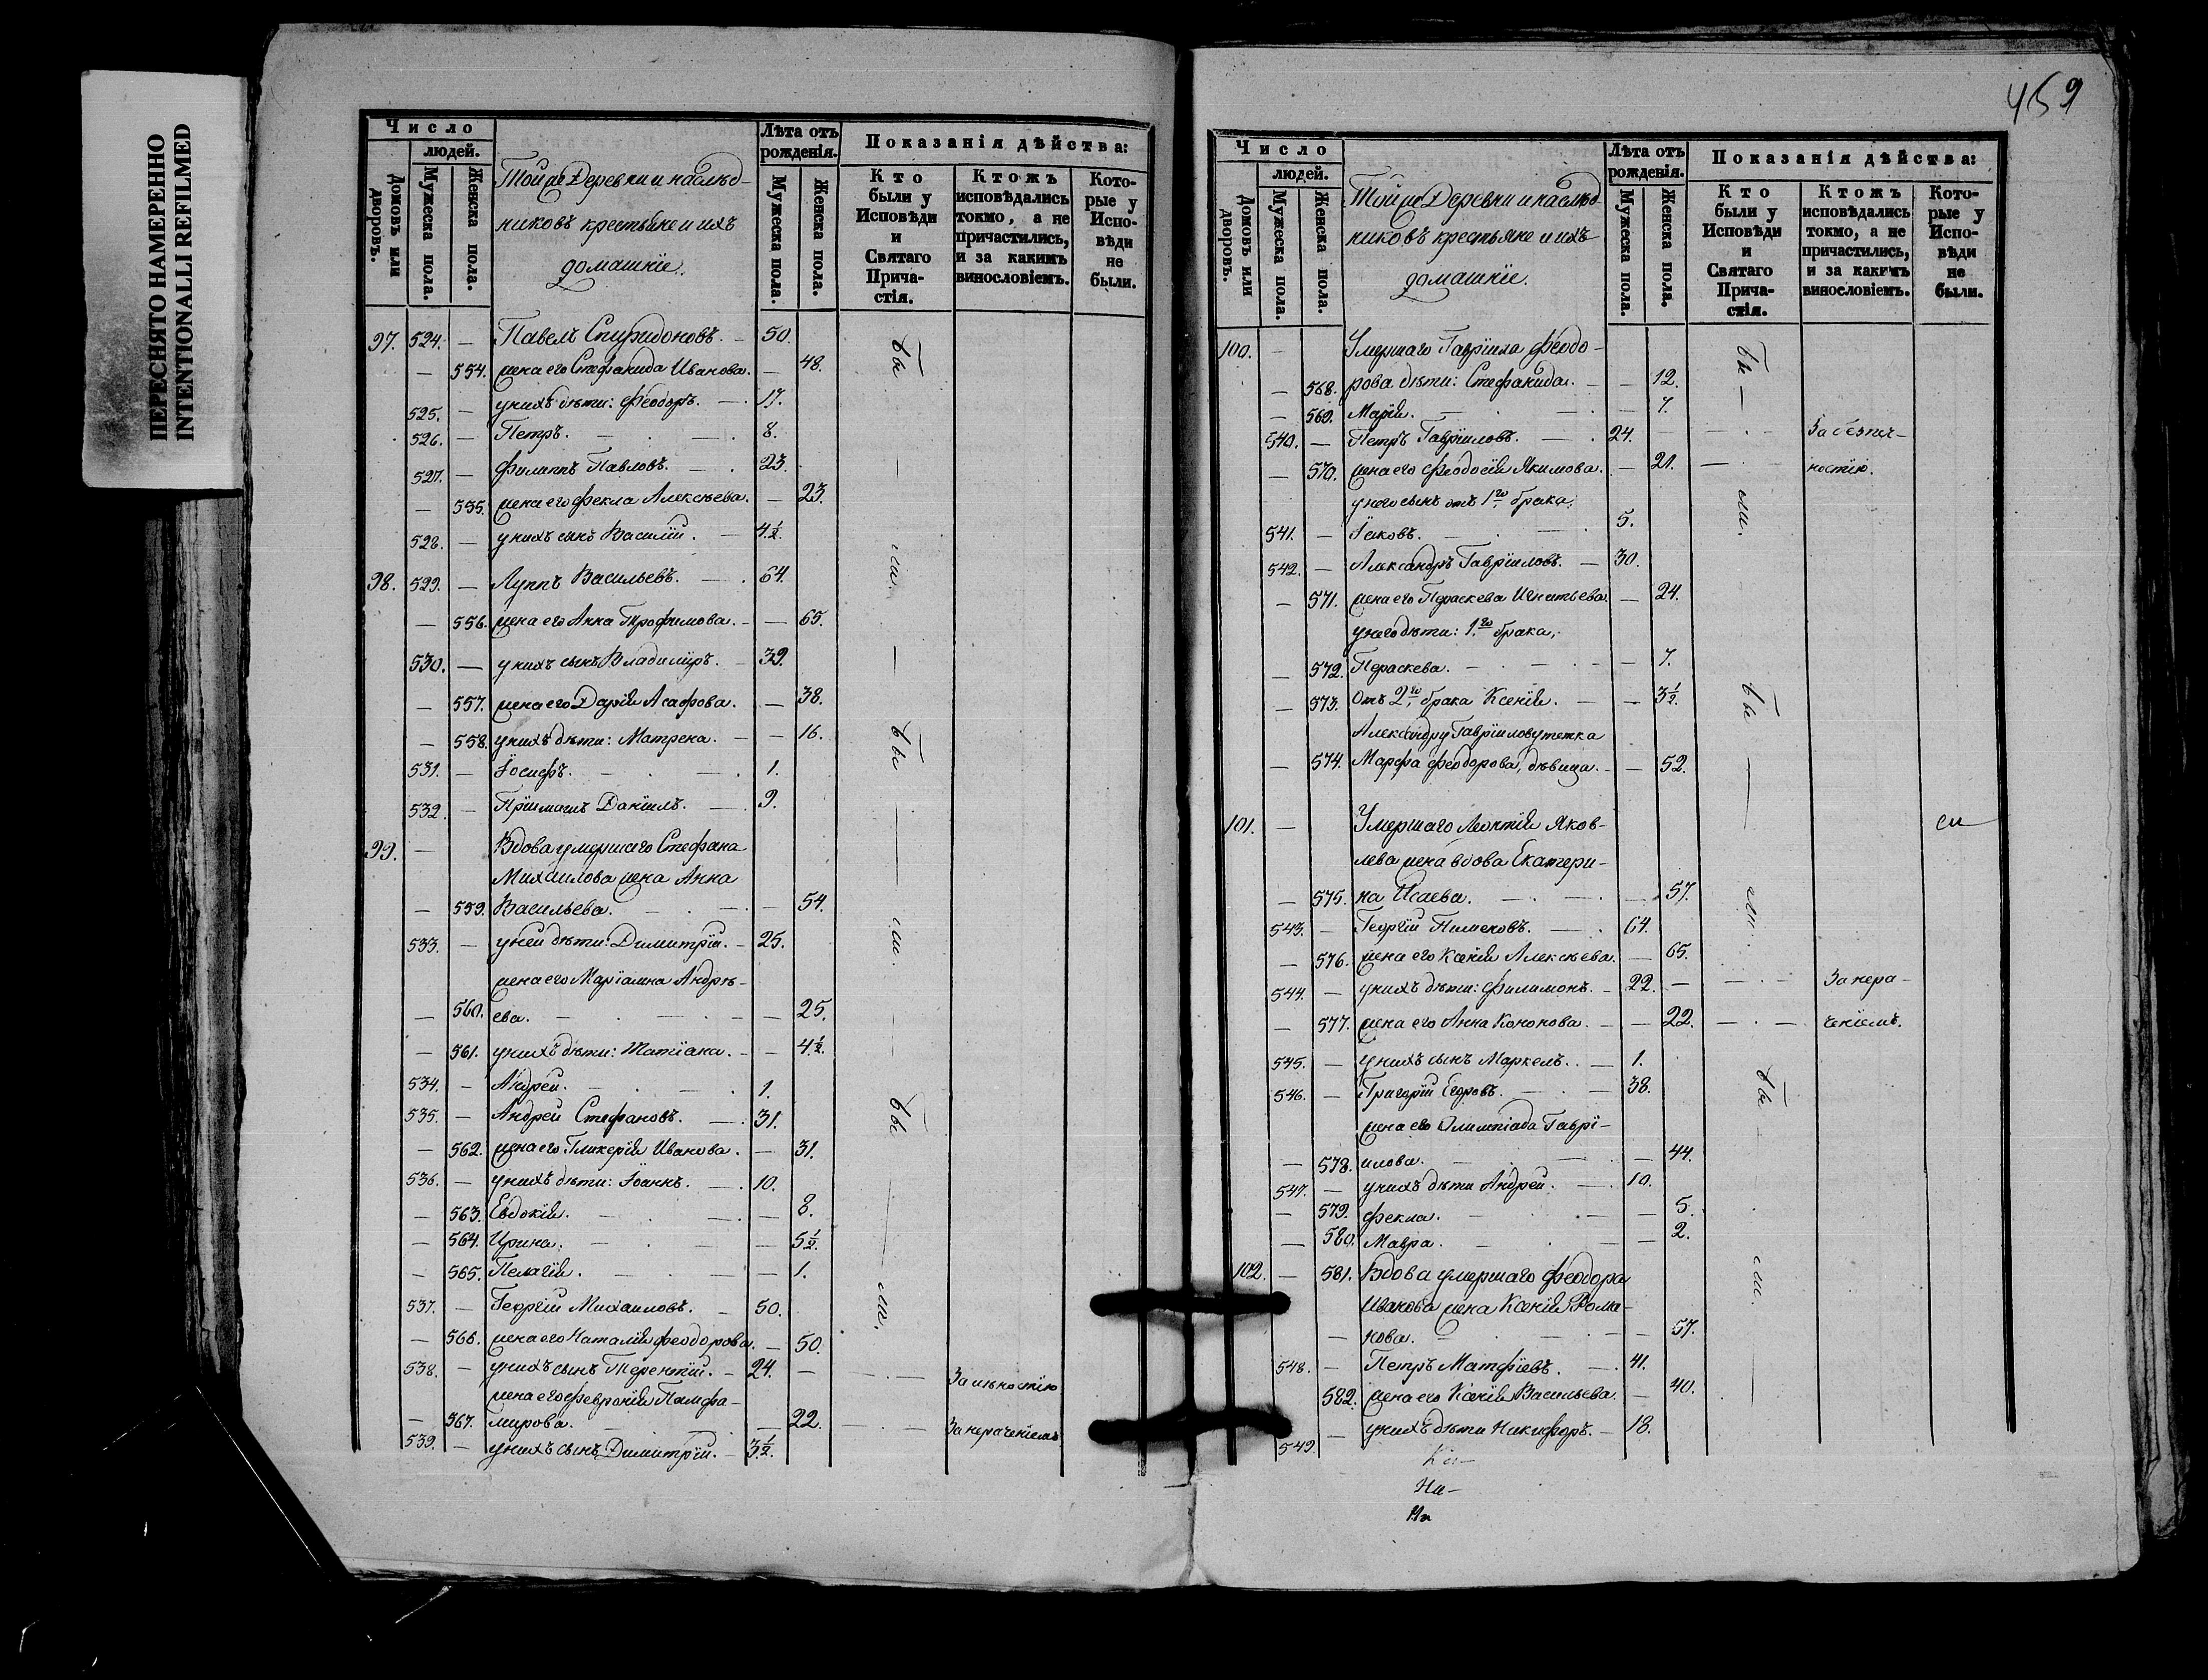 ПЕРЕСНЯТО НАМЕРЕННО
INTENTIONALLI REFILMED
Число
людей.
Домовъ или дворовъ.
Мужеска пола.
Женска пола.
Тойже Деревни и наслѣд-
никовъ крестьяне и ихъ
домашніе.
Лѣта отъ рожденія.
Мужеска пола.
Женска пола.
Показанія дѣйства:
Кто были у Исповѣди и Святаго Прича-стія.
Ктожъ исповѣдались токмо, а не причастились, и за какимъ винословіемъ.
Кото-рые у Испо-вѣди не были.
97. 524. — Павелъ Спиридоновъ. — 50.
— 554. жена его Стефанида Иванова. — 48.
525. — у нихъ дѣти: Феодоръ. — 17.
526. — Петръ. — 8.
527. — Филиппъ Павловъ. — 23.
— 555. жена его Фекла Алексѣева. — 23.
528. — у нихъ сынъ Василій. — 4½.
98. 529. — Луппъ Васильевъ. — 64.
— 556. жена его Анна Трофимова. — 65.
530. — у нихъ сынъ Владимиръ. — 39.
— 557. жена его Дарія Асафова. — 38.
— 558. у нихъ дѣти: Матрена. — 16.
531. — Іосифъ. — 1.
532. — Пріимышъ Даніилъ. — 9.
99. — Вдова умершаго Стефана
Михаилова жена Анна
— 559. Васильева. — 54.
533. — у ней дѣти: Димитрій. — 25.
жена его Маріамна Андрѣ-
— 560. ева. — 25.
— 561. у нихъ дѣти: Татіана. — 4½.
534. — Андрей. — 1.
535. — Андрей Стефановъ. — 31.
— 562. жена его Гликерія Иванова. — 31.
536. — у нихъ дѣти: Іоаннъ. — 10.
— 563. Евдокія. — 8.
— 564. Ирина. — 5½.
— 565. Пелагія. — 1.
537. — Георгій Михаиловъ. — 50.
— 566. жена его Наталія Феодорова. — 50.
538. — у нихъ сынъ Терентій. — 24. — За лѣностію
жена его Февронія Памфа-
— 567. мирова. — 22. — За нераченіемъ
539. — у нихъ сынъ Димитрій. — 3½.
бы
—
ли.
—
бы
—
ли.
—
бы
—
ли.
459
Число
людей.
Домовъ или дворовъ.
Мужеска пола.
Женска пола.
Тойже Деревни и наслѣд-
никовъ крестьяне и ихъ
домашніе.
Лѣта отъ рожденія.
Мужеска пола.
Женска пола.
Показанія дѣйства:
Кто были у Исповѣди и Святаго Прича-стія.
Ктожъ исповѣдались токмо, а не причастились, и за какимъ винословіемъ.
Кото-рые у Испо-вѣди не были.
100. — Умершаго Гавріила Феодо-
— 568. рова дѣти: Стефанида. — 12.
— 569. Марія. — 7.
540. — Петръ Гавріиловъ. — 24. — За безпеч-
— 570. жена его Феодосія Якимова. — 21. — ностію.
у него сынъ отъ 1го брака,
541. — Іаковъ. — 5.
542. — Александръ Гавріиловъ. — 30.
— 571. жена его Параскева Игнатьева. — 24.
у него дѣти: 1го брака,
— 572. Параскева. — 7.
— 573. Отъ 2го брака Ксенія. — 3½.
Александру Гавріилову тетка
— 574. Марфа Феодорова, дѣвица. — 52.
101. — Умершаго Леонтія Яков-
лева жена вдова Екатери-
— 575. на Исаева. — 57.
543. — Георгій Пименовъ. — 64.
— 576. жена его Ксенія Алексѣева. — 65.
544. — у нихъ дѣти: Филимонъ. — 22. — За нера-
— 577. жена его Анна Кононова. — 22. — ченіемъ.
545. — у нихъ сынъ Маркелъ. — 1.
546. — Григорій Егоровъ. — 38.
жена его Олимпіада Гаврі-
— 578. илова. — 44.
547. — у нихъ дѣти Андрей. — 10.
— 579. Фекла. — 5.
— 580. Мавра. — 2.
102. — 581. Вдова умершаго Феодора
Иванова жена Ксенія Рома-
— нова. — 57.
548. — Петръ Матфіевъ. — 41.
582. жена его Ксенія Васильева. — 40.
549. — у нихъ дѣти Никифоръ. — 18.
бы
—
ли.
бы
—
ли.
бы
—
ли.
—
Ни-